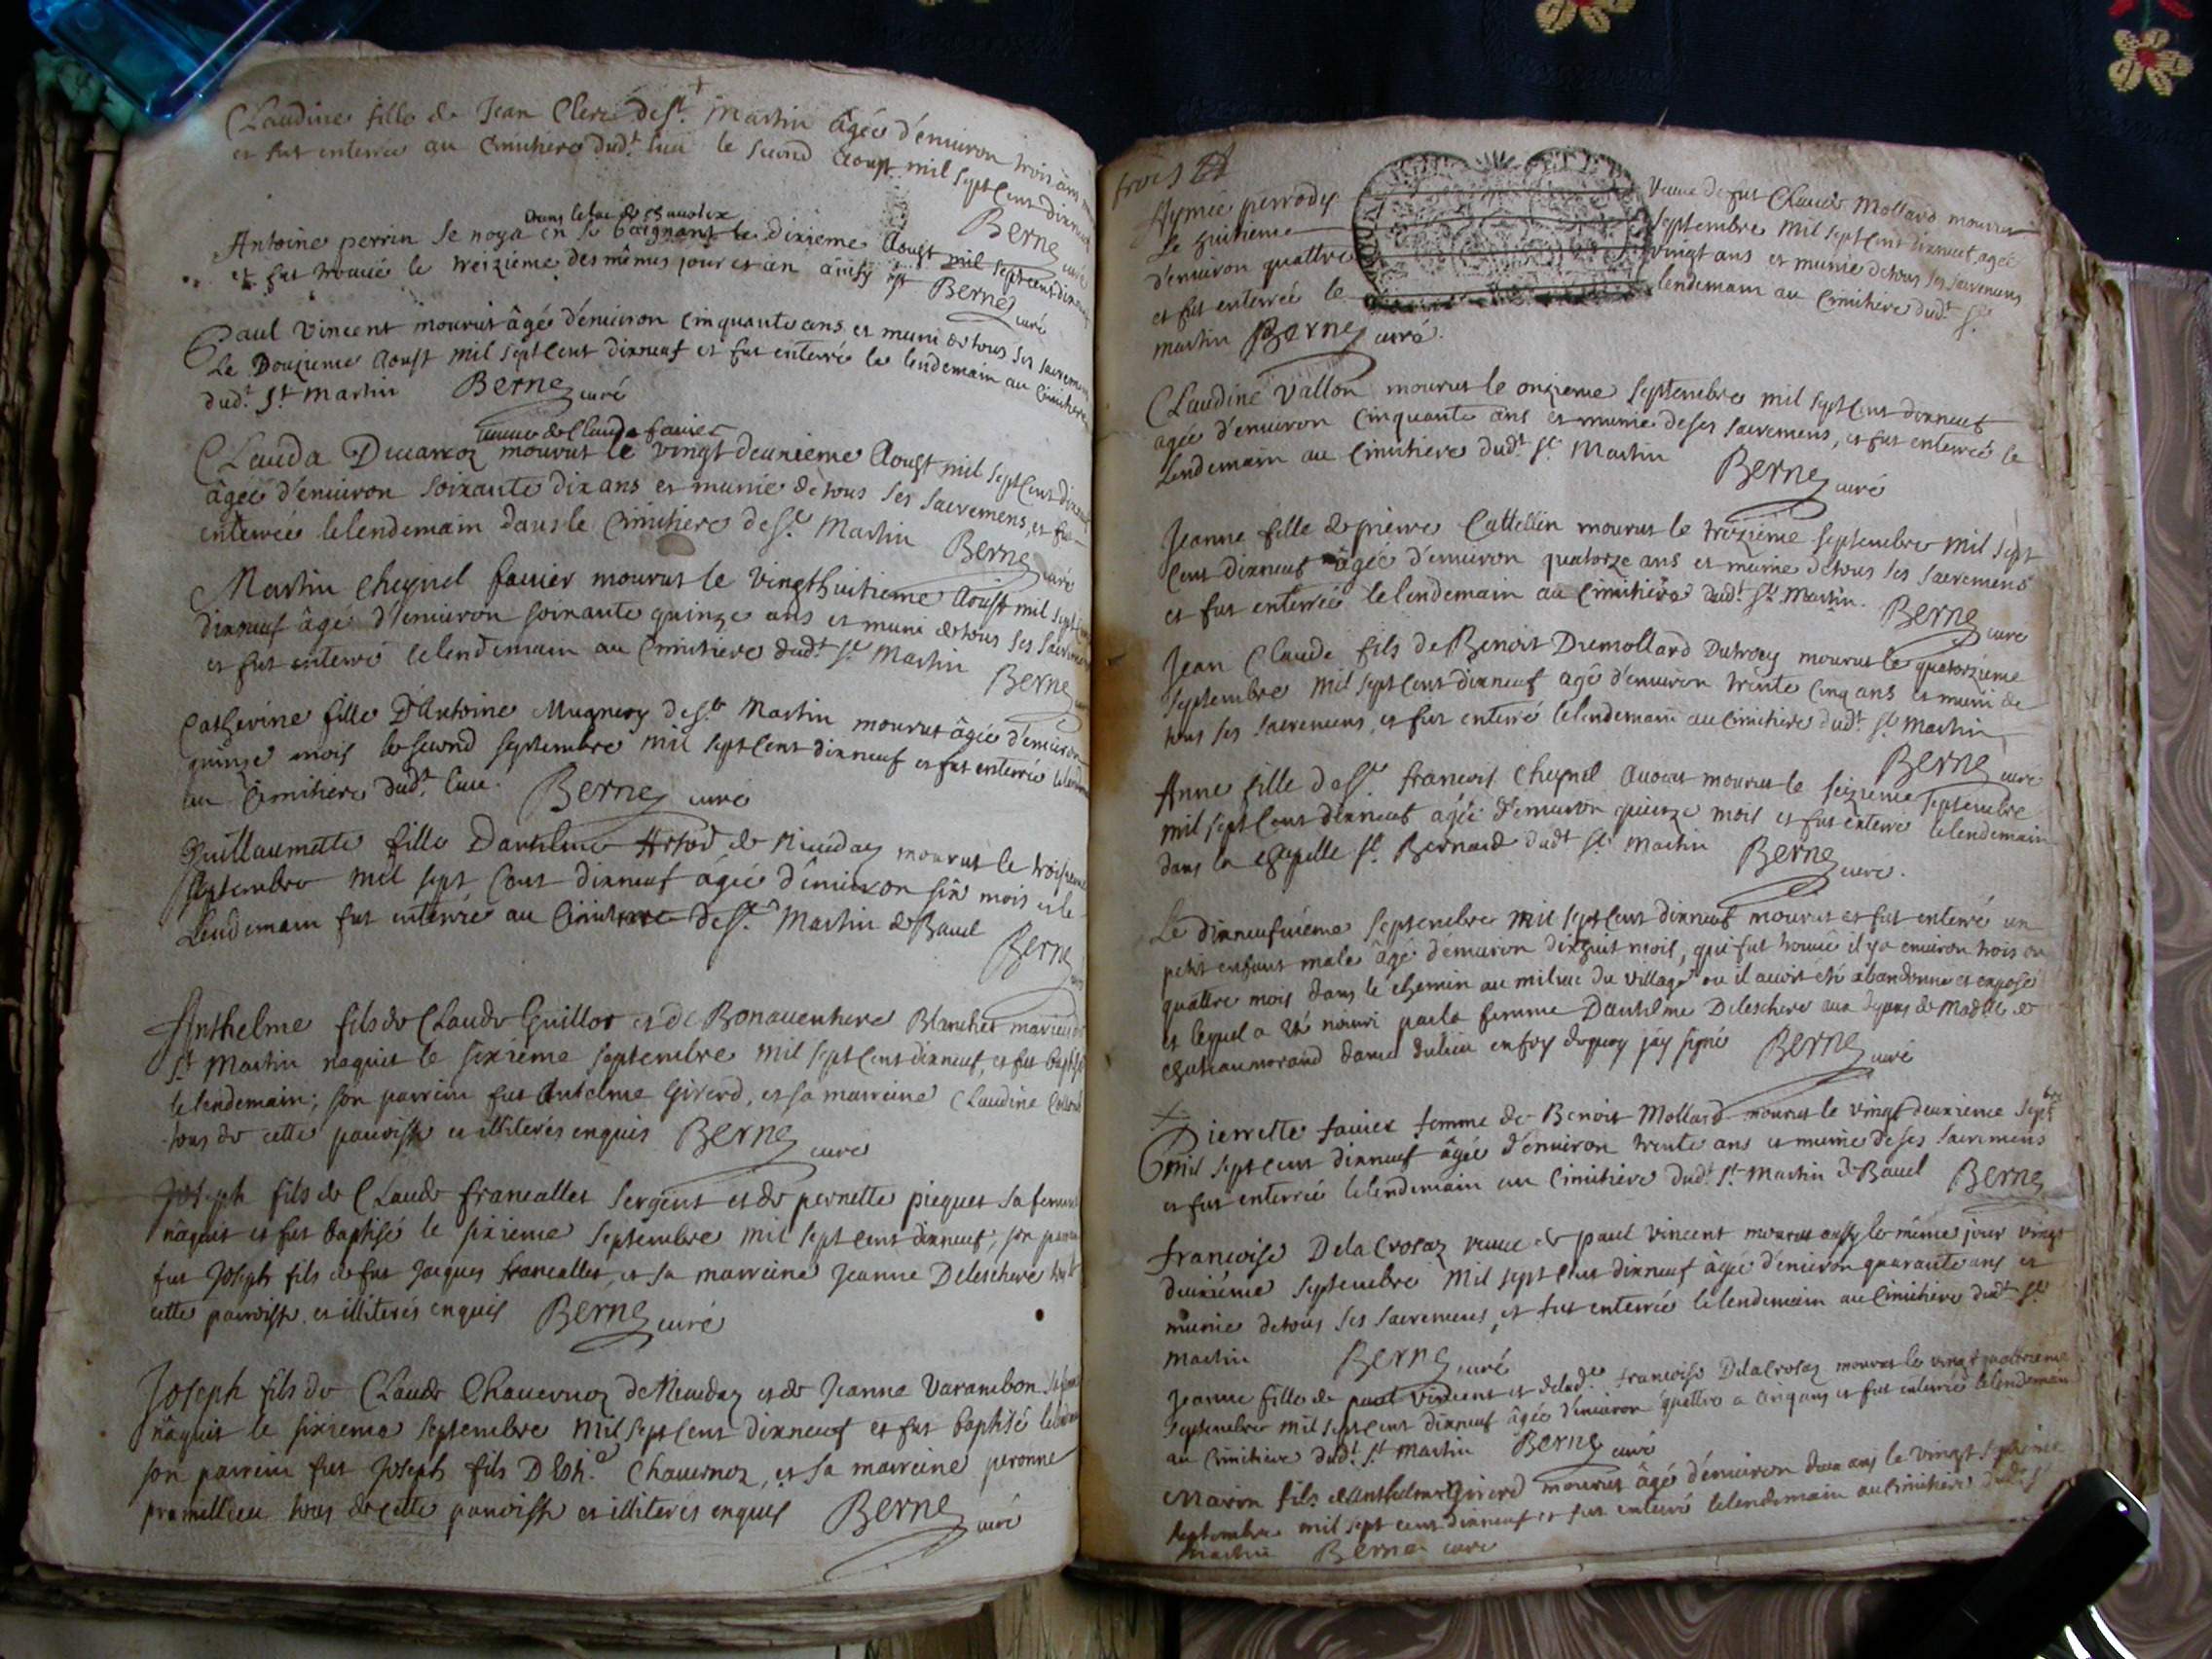 Claudine fille de Jean Clerc de St. Martin âgée d'environ trois ans
et fut enterrée au Cimitiere dud.t lieu le second Aoust mil sept Cent dixneuf
Berne curé
Dans le lac de chavolex
Antoine perrin se noya en se baignant le dixieme Aoust mil sept cent dixneuf
et fut trouvé le treizième des mêmes jour et an ainsy est Berne curé
Paul Vincent mourut âgé d'environ Cinquante ans et muni de tous ses sacremens
Le Douzieme Aoust mil sept Cent dixneuf et fut enterré le lendemain au Cimitiere
dud.t St Martin Berne curé
veuve de Claude favier
Clauda Ducarroz mourut le vingt deuxieme Aoust mil sept Cent dixneuf
âgée d'environ soixante dix ans et munie de tous ses sacremens, et fut
enterrée le lendemain dans le Cimitiere de St. Martin Berne curé
Martin Cheynel favier mourut le vingt huitieme Aoust mil sept Cent
dixneuf âgé d'environ soixante quinze ans et muni de tous ses sacremens
et fut enterré le lendemain au Cimitiere dud.t St Martin Berne
Catherine fille D'Antoine Mugnery de St. Martin mourut âgée d'environ
quinze mois le second septembre mil sept Cent dixneuf et fut enterrée le lendemain
au Cimitiere dud.t lieu. Berne curé
Guillaumette fille Dantelme Artod de Niuiday mourut le troisieme
septembre mil sept Cent dixneuf âgée d'environ six mois et le
Lendemain fut enterrée au Cimitiere de St. Martin de Bavel
Berne
Anthelme fils de Claude Guillot et de Bonaventure Blanchet mariés de
St Martin naquit le sixieme septembre mil sept Cent dixneuf, et fut baptisé
le lendemain; son parrein fut Antelme Girerd, et sa marreine Claudine
tous de cette parroisse et illiterés enquis Berne curé
Joseph fils de Claude francallet sergent et de pernette picquet sa femme
nâquit et fut baptisé le sixieme septembre mil sept Cent dixneuf; son parrein
fut Joseph fils de fut Jacques francallet, et sa marreine Jeanne Deleschere tous de
cette parroisse et illiterés enquis Berne curé
Joseph fils de Claude Chavernoz de Niuiday et de Jeanne Varambon sa femme
nâquit le sixieme septembre mil sept Cent dixneuf et fut baptisé le lendemain
son parrein fut Joseph fils D Esti.e Chavernoz, et sa marreine peronne
promillieu tous de cette parroisse et illiterés enquis Berne curé
trois
Aymée perrody veuve de fut Claude Mollard mourut
Le huitieme septembre mil sept Cent dixneuf, agée
d'environ quattre vingt ans et munie de tous ses sacremens
et fut enterrée le lendemain au Cimitiere dud.t St.
martin Berne curé.
Claudine Vallon mourut le onzieme septembre mil sept Cent dixneuf
agée d'environ Cinquante ans et munie de ses sacremens, et fut enterrée le
Lendemain au Cimitiere dud.t St. Martin Berne curé
Jeanne fille de pierre Cattellin mourut le treizieme septembre mil sept
Cent dixneuf âgée d'environ quatorze ans et munie de tous ses sacremens
et fut enterrée le lendemain au Cimitiere dud.t St. Martin. Berne curé
Jean Claude fils de Benoit Dumollard Dutroey mourut le quatorzieme
septembre mil sept Cent dixneuf agé d'environ trente Cinq ans et muni de
tous ses sacremens, et fut enterré le lendemain au Cimitiere dud.t St. Martin
Berne curé
Anne fille de Sr. françois Cheynel Avocat mourut le seizieme septembre
mil sept Cent dixneuf agée d'environ quinze mois et fut enterrée le lendemain
dans la Chapelle St. Bernard dud.t St Martin Berne curé.
Le dixneufvième septembre mil sept Cent dixneuf mourut et fut enterré un
petit enfant male âgé d'environ dixhuit mois, qui fut trouvé il y a environ trois ou
quattre mois dans le chemin au milieu du village ou il avoit été abandonné et exposé
et lequel a été nourri par la femme Dantelme Deleschere aux depans de Mad.lle de
Chateaumorand dame du lieu en foy dequoy j'ay signé Berne curé
Pierrette favier femme de Benoit Mollard mourut le vingt deuxieme septbre
mil sept Cent dixneuf âgée d'environ trente ans et munie de ses sacremens
et fut enterrée le lendemain au Cimitiere dud.t St. Martin de Bavel Berne
françoise Delacrosaz veuve de paul vincent mourut aussy le même jour vingt
deuxième septembre mil sept Cent dixneuf âgée d'environ quarante ans et
munie de tous ses sacremens, et fut enterrée le lendemain au Cimitiere dud.t St
Martin Berne curé
Jeanne fille de paul vincent et de lad.e françoise Delacrosaz mourut le vingt quattrieme
septembre mil sept Cent dixneuf âgée d'environ quattre a cinq ans et fut enterrée le lendemain
au Cimitiere dud.t St Martin Berne curé
Marin fils d'Anthelme Girerd mourut âgé d'environ deux ans le vingt septieme
septembre mil sept cent dixneuf et fut enterré le lendemain au Cimitiere dud.t St
Martin Berne curé